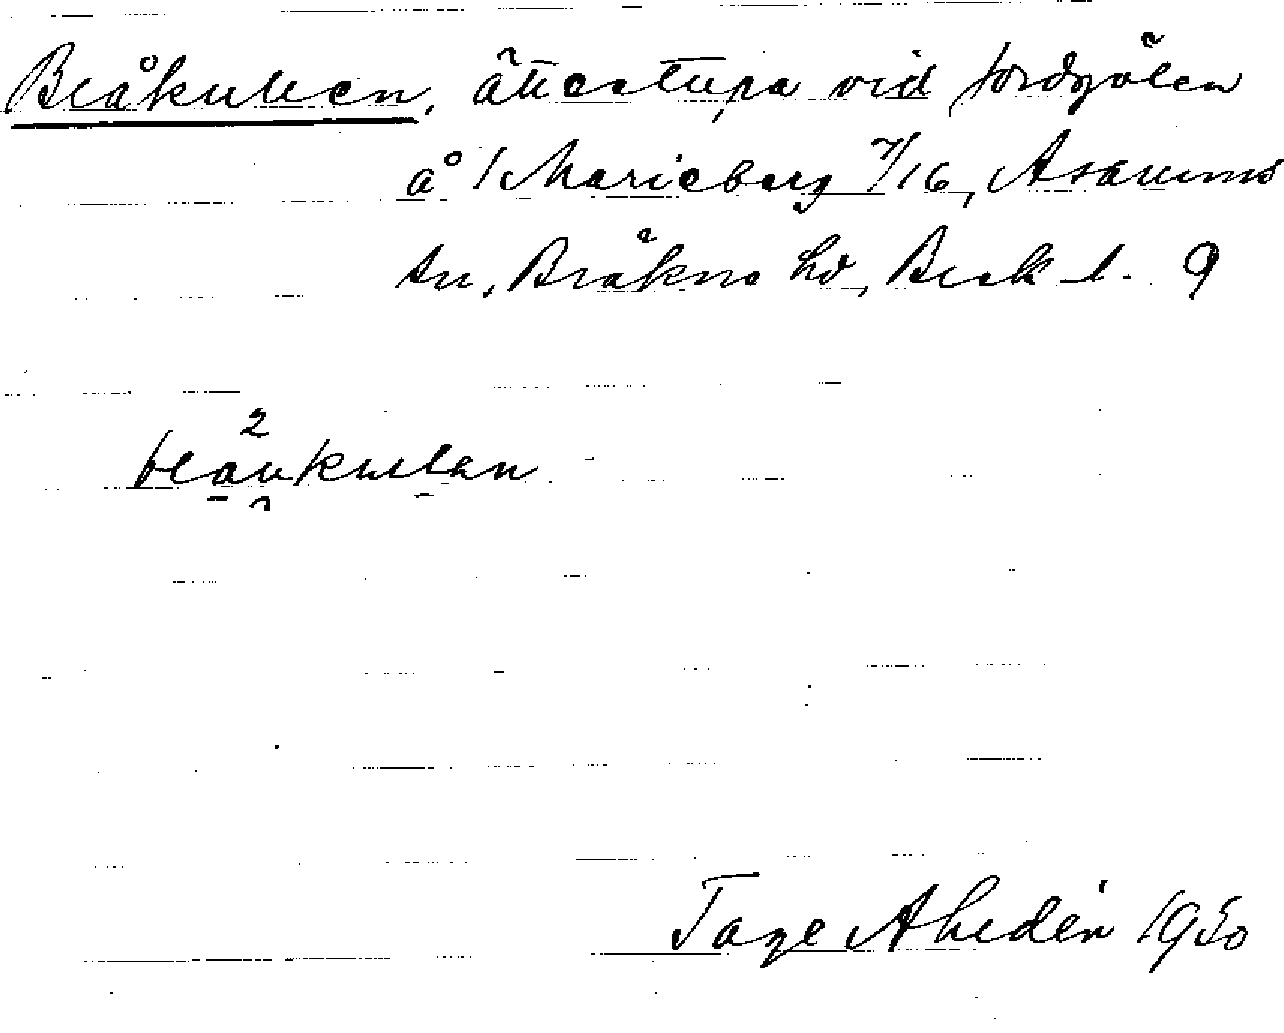 Blåkullen, ättestupa vid Jordgölen
å 1 Marieberg 7/16, Asarums
sn, Bräkne hd, Blek. l. 9
2
blaukullan
Tage Ahldén 1950